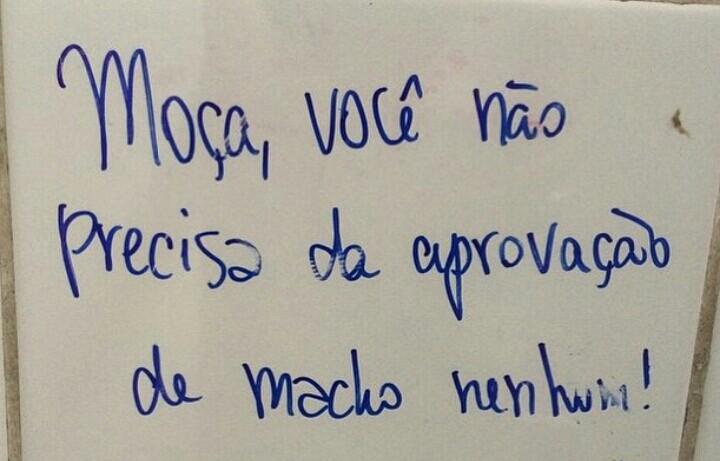 Moça, você não
precisa da aprovação
de macho nenhum!